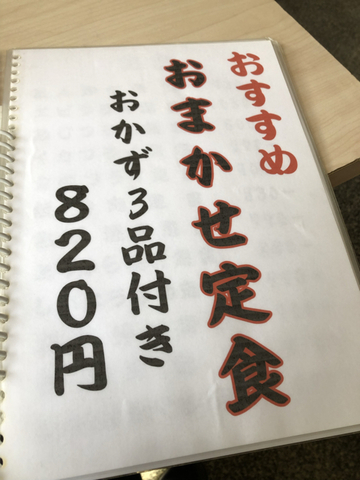 おすすめ
おまかせ定食
おかず3品付き
820円